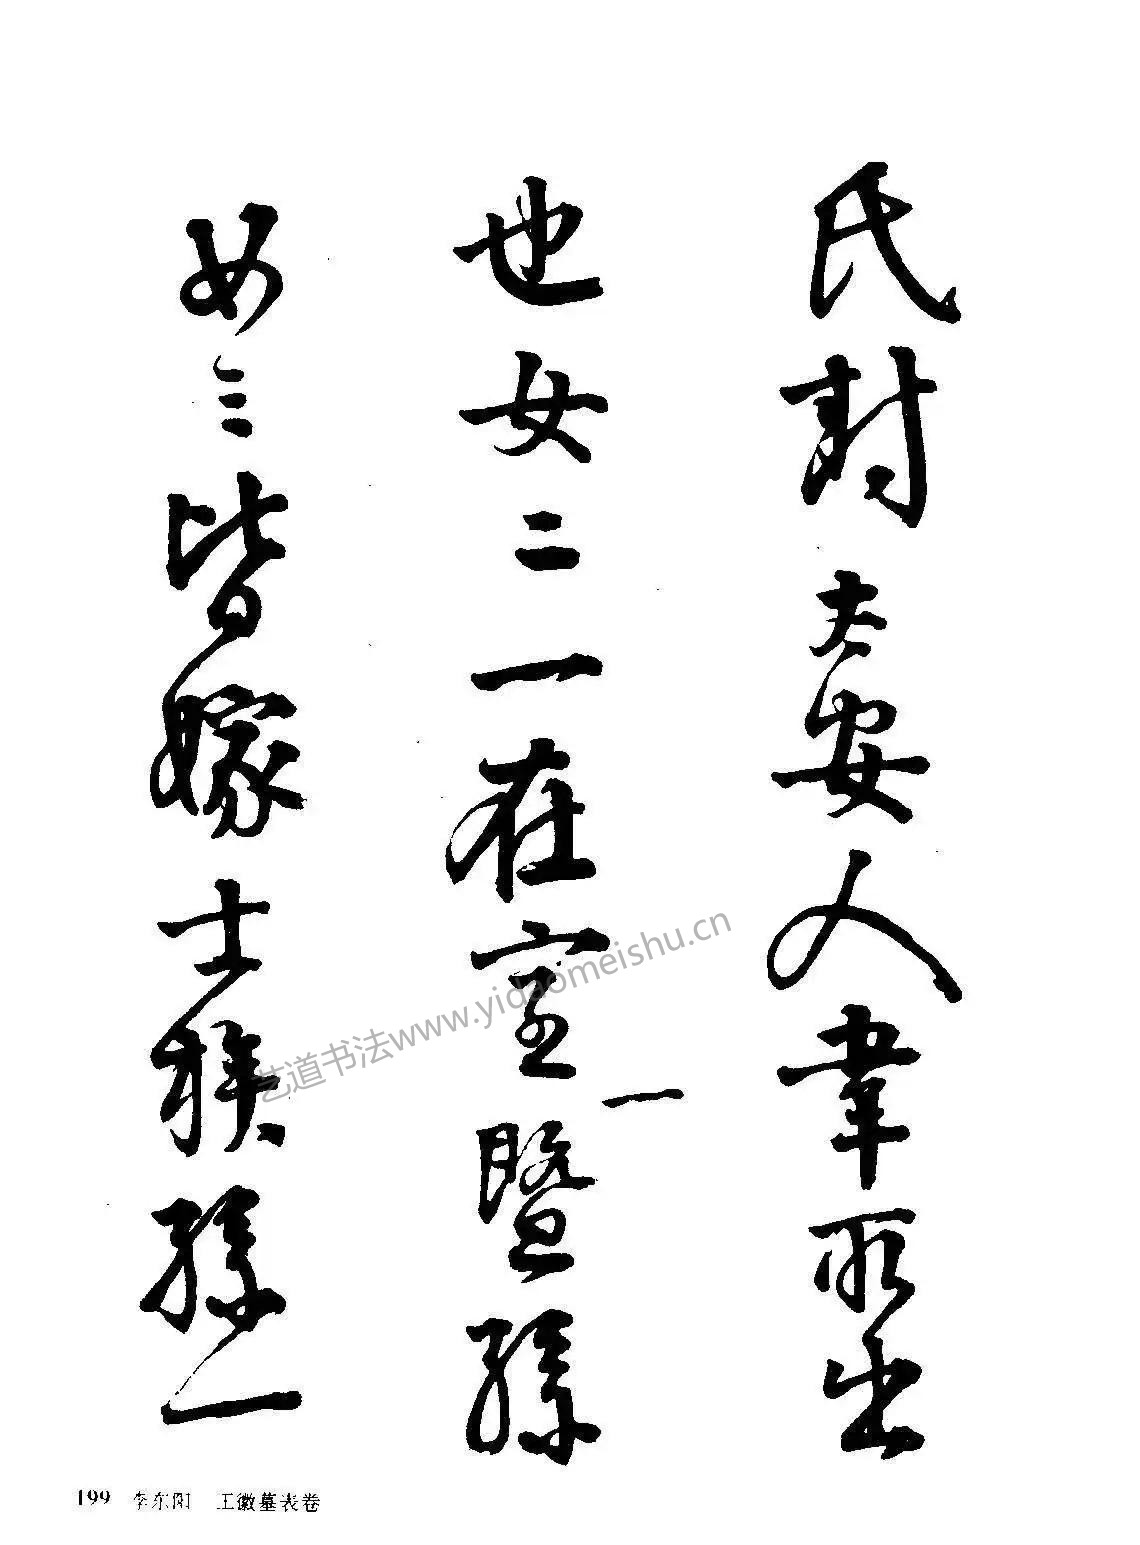 氏封太安人韋所出
也女二一在室一暨孫
女三皆嫁士族孫一
艺道书法www.yidaomeishu.cn
199 李东阳 王徽墓表卷